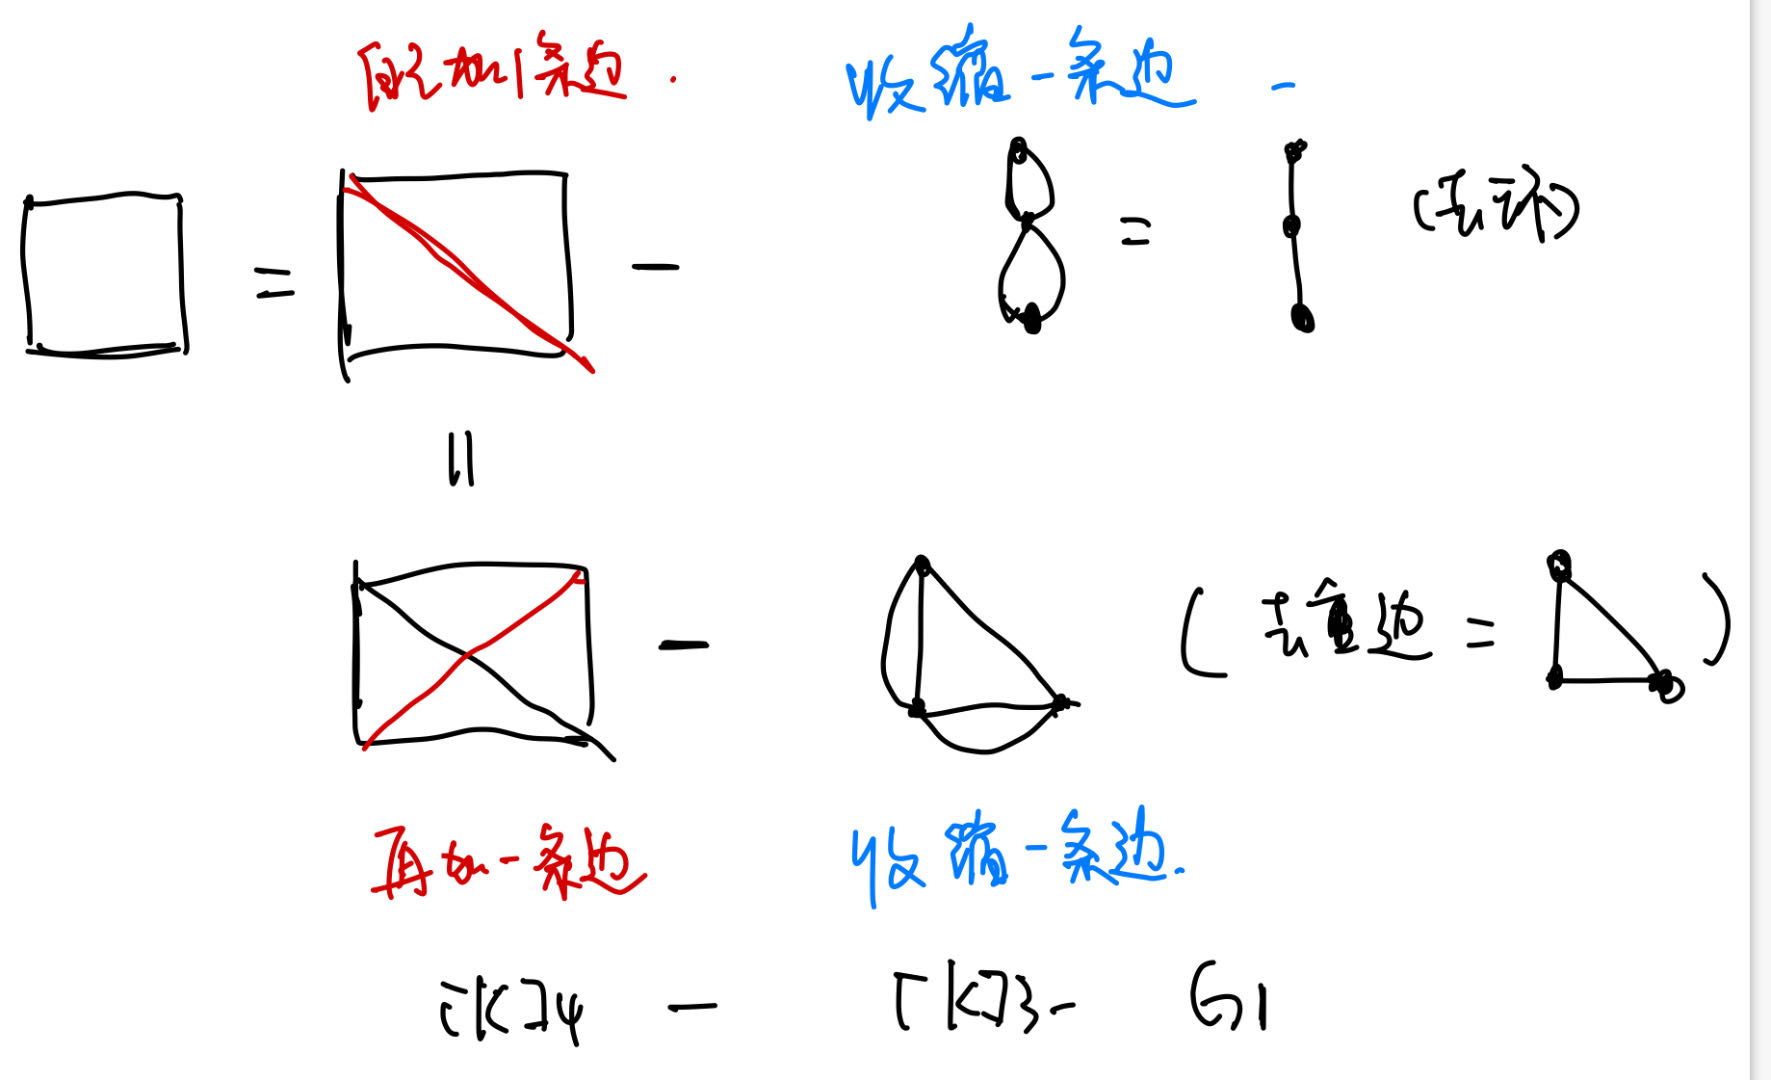 加1条边.
收缩一条边 -
= - = (去环)
=
- (去重边 = )
再加一条边
收缩一条边.
[K]4 - [K]3 - G1